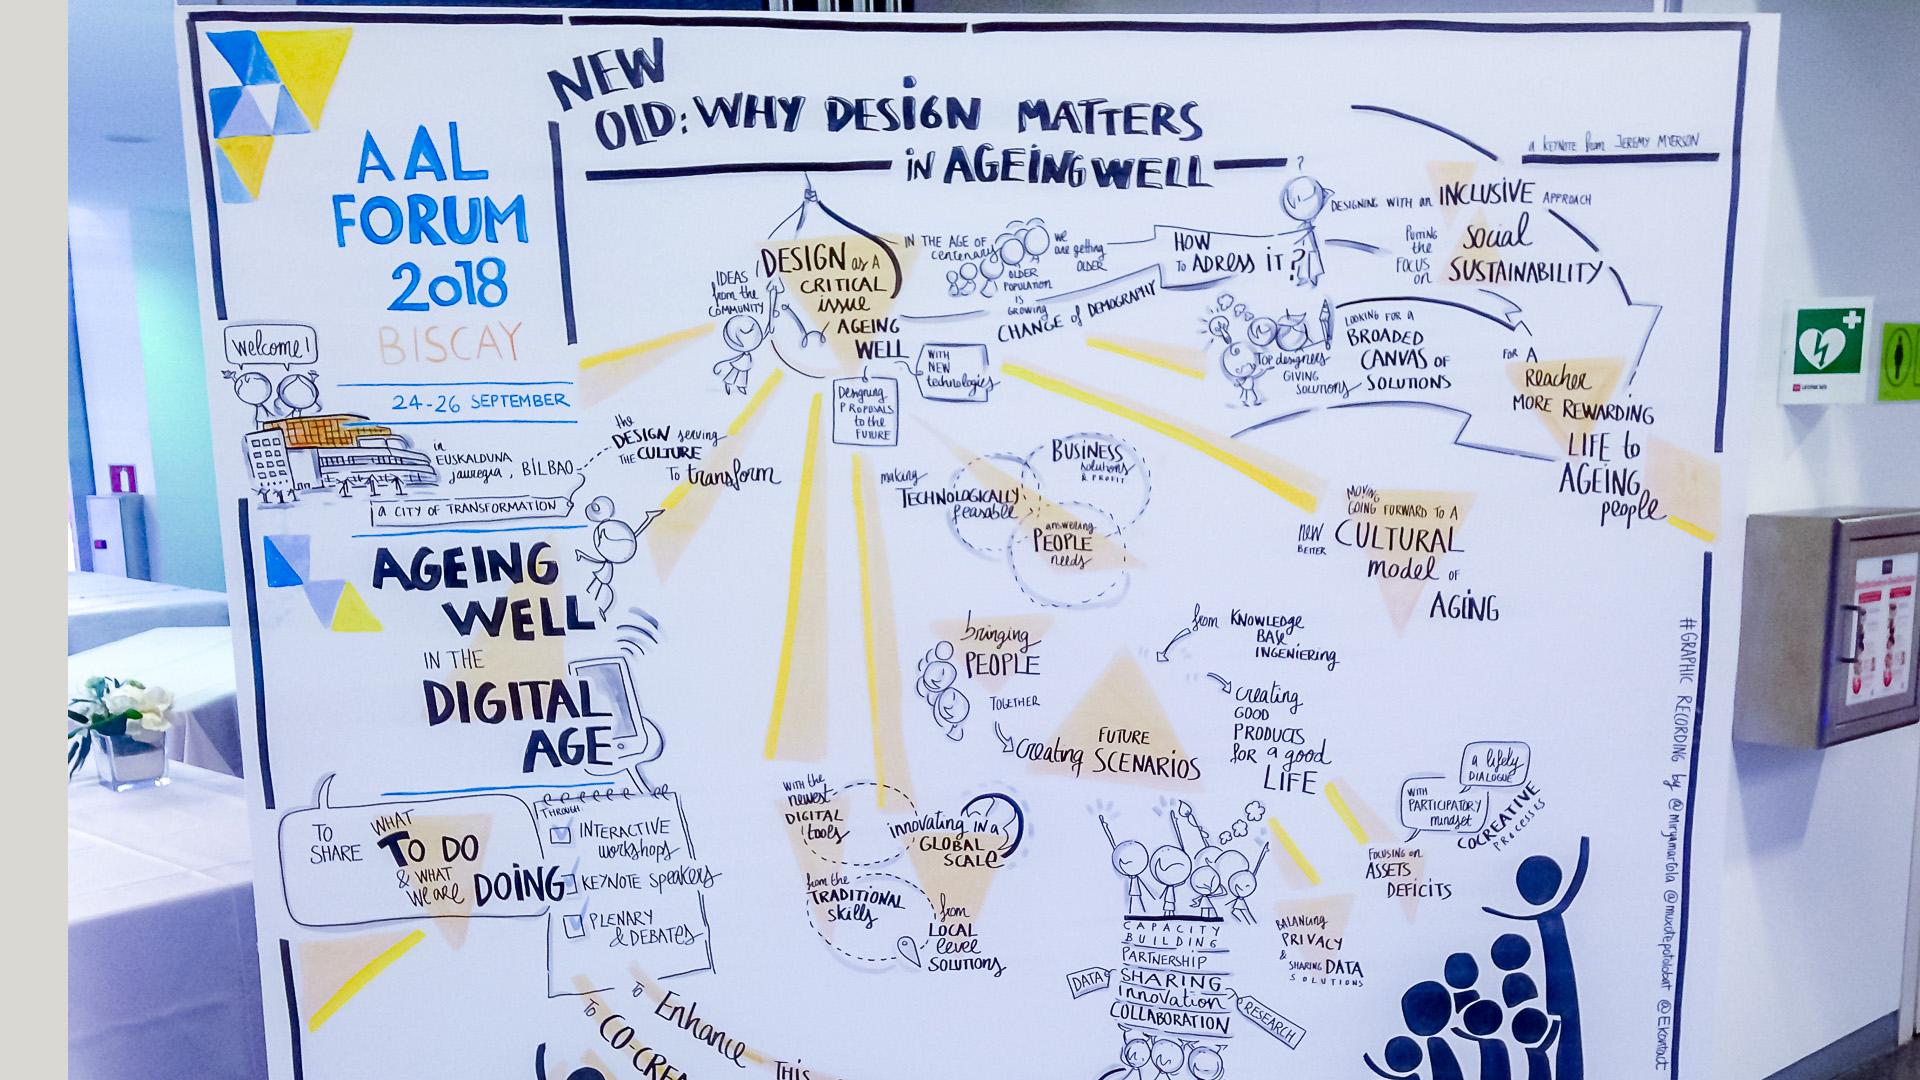 NEW
OLD: WHY DESIGN MATTERS
IN AGEING WELL
a KEYNOTE from JEREMY MYERSON
AAL
FORUM
2018
BISCAY
24-26 SEPTEMBER
welcome!
in
EUSKALDUNA
jauregia, BILBAO
a CITY OF TRANSFORMATION
the
DESIGN serving
THE CULTURE
To transform
AGEING
WELL
IN THE
DIGITAL
AGE
TO
SHARE
WHAT
TO DO
& WHAT
we are DOING
THROUGH:
INTERACTIVE
workshops
KEYNOTE speakers
PLENARY
& DEBATES
TO
Enhance
THIS
TO
CO-CREA
IDEAS
from the
COMMUNITY
DESIGN as A
CRITICAL
issue
AGEING
WELL
WITH
NEW
technologies
Designing
PROPOSALS
to the
FUTURE
IN THE AGE OF
centenary
we
are getting
OLDER
OLDER
POPULATION
IS
GROWING
CHANGE of DEMOGRAPHY
HOW
to ADRESS iT?
?
DESIGNING WITH an INCLUSIVE APPROACH
PUTTING
the
FOCUS
on
Social
SUSTAINABILITY
TOP designers
GIVING
SOLUTIONS
LOOKING FOR a
BROADED
CANVAS OF
SOLUTIONS
FOR A
Reacher
MORE REWARDING
LIFE to
AGEING
people
making
TECHNOLOGICALLY
feasable
BUSINESS
solutions
& PROFIT
answering
PEOPLE
needs
MOVING
GOING FORWARD TO A
new
BETTER
CULTURAL
model OF
AGING
bringing
PEOPLE
TOGETHER
Creating
FUTURE
SCENARIOS
from KNOWLEDGE
BASE
INGENIERING
Creating
GOOD
PRODUCTS
for a good
LIFE
WITH the
newest
DIGITAL
tools
from the
TRADITIONAL
skills
innovating IN a
GLOBAL
SCALE
from
LOCAL
level
SOLUTIONS
CAPACITY
BUILDING
PARTNERSHIP
DATA
SHARING
innovation
COLLABORATION
RESEARCH
BALANCING
PRIVACY
&
SHARING DATA
SOLUTIONS
FOCUSING on
ASSETS
DEFICITS
WITH
PARTICIPATORY
mindset
a lifely
DIALOGUE
COCREATIVE
PROCESSES
#GRAPHIC RECORDING by @miryamartola @muxotepotolobat @EKontact